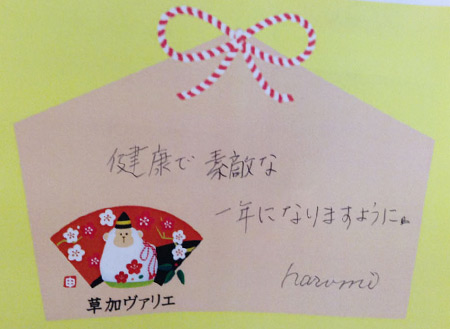 健康で 素敵な
一年になりますように。
harumi
申
草加ヴァリエ